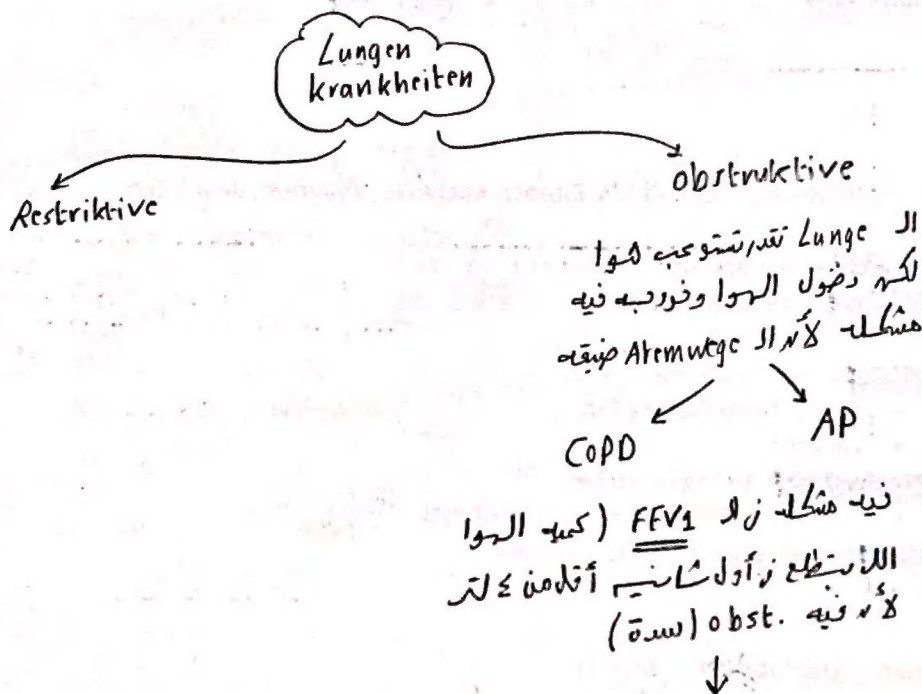 Lungen
krankheiten
Restriktive
obstruktive
ال Lunge تقدر تستوعب هوا
لكن دخول الهوا وخروجه فيه
مشكلة لأن ال Atemwege ضيقه
COPD
AP
فيه مشكله في ال FEV1 (كمية الهوا
اللي تطلع في أول ثانيه أقل من ٤ لتر
لأن فيه .obst (سدة)